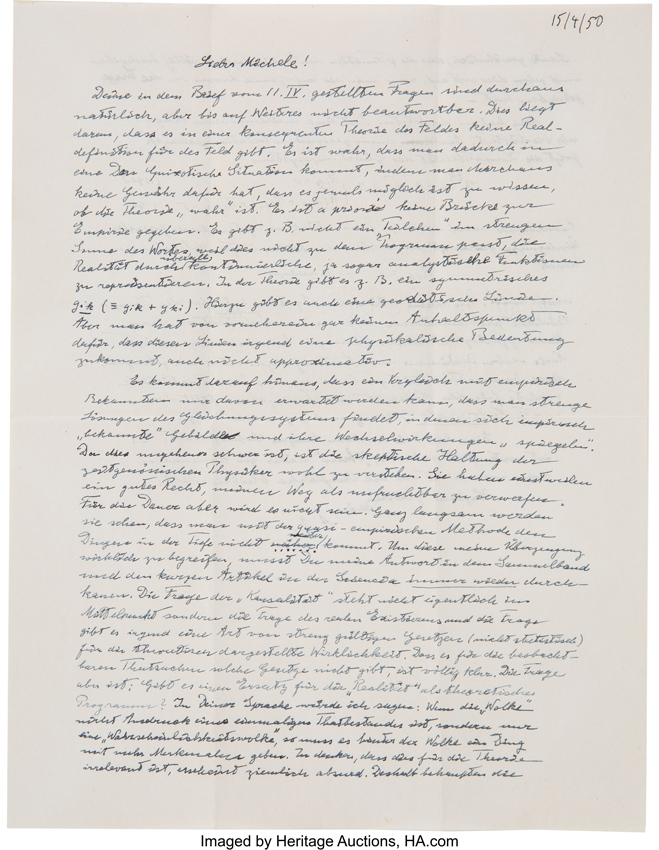 15/4/50
Lieber Michele!
Deine in dem Brief vom 11. IV. gestellten Fragen sind durchaus
natürlich, aber bis auf Weiteres nicht beantwortbar. Dies liegt
daran, dass es in einer konsequenten Theorie des Feldes keine Real-
definition für das Feld gibt. Es ist wahr, dass man dadurch in
eine Don Quixotische Situation kommt, indem man durchaus
keine Gewähr dafür hat, dass es jemals möglich ist zu wissen,
ob die Theorie „wahr" ist. Es ist a priori keine Brücke zur
Empirie gegeben. Es gibt z. B. nicht ein „Teilchen" im strengen
Sinne des Wortes, weil dies nicht zu dem Programm passt, die
Realität durch überall kontinuierliche, ja sogar analytische Funktionen
zu repräsentieren. In der Theorie gibt es z. B. ein symmetrisches
gik (≡ gik + gki). Hierzu gibt es auch eine geodätische Linie.
Aber man hat von vornherein gar keinen Anhaltspunkt
dafür, dass diesen Linien irgend eine physikalische Bedeutung
zukommt, auch nicht approximativ.
Es kommt darauf hinaus, dass ein Vergleich mit empirisch
Bekanntem nur davon erwartet werden kann, dass man strenge
Lösungen des Gleichungssystems findet, in denen sich empirisch
„bekannte" Gebilde und ihre Wechselwirkungen „spiegeln".
Da dies ungeheuer schwer ist, ist die skeptische Haltung der
zeitgenössischen Physiker wohl zu verstehen. Sie haben einstweilen
ein gutes Recht, meinen Weg als unfruchtbar zu verwerfen.
Für die Dauer aber wird es nicht sein. Ganz langsam werden
sie sehen, dass man mit der quasi-empirischen Methode den
Dingen in der Tiefe nicht näher kommt. Um diese meine Überzeugung
wirklich zu begreifen, musst Du meine Antwort in dem Sammelband
und den kurzen Artikel in der Scienzia immer wieder durch-
kauen. Die Frage der „Kausalität" steht nicht eigentlich im
Mittelpunkt sondern die Frage des realen Existierens und die Frage
gibt es irgend eine Art von streng gültigen Gesetzen (nicht statistisch)
für die theoretisch dargestellte Wirklichkeit. Dass es für die beobacht-
baren Thatsachen solche Gesetze nicht gibt, ist völlig klar. Die Frage
aber ist: Gibt es einen Ersatz für die „Realität" als theoretisches
Programm? In Deiner Sprache würde ich sagen: Wenn die „Wolke"
nicht Ausdruck eines einmaligen Thatbestandes ist, sondern nur
eine „Wahrscheinlichkeitswolke", so muss es hinter der Wolke ein Ding
mit mehr Merkmalen geben. Zu denken, dass dies für die Theorie
irrelevant ist, erscheint ziemlich absurd. Deshalb behaupten die
Imaged by Heritage Auctions, HA.com